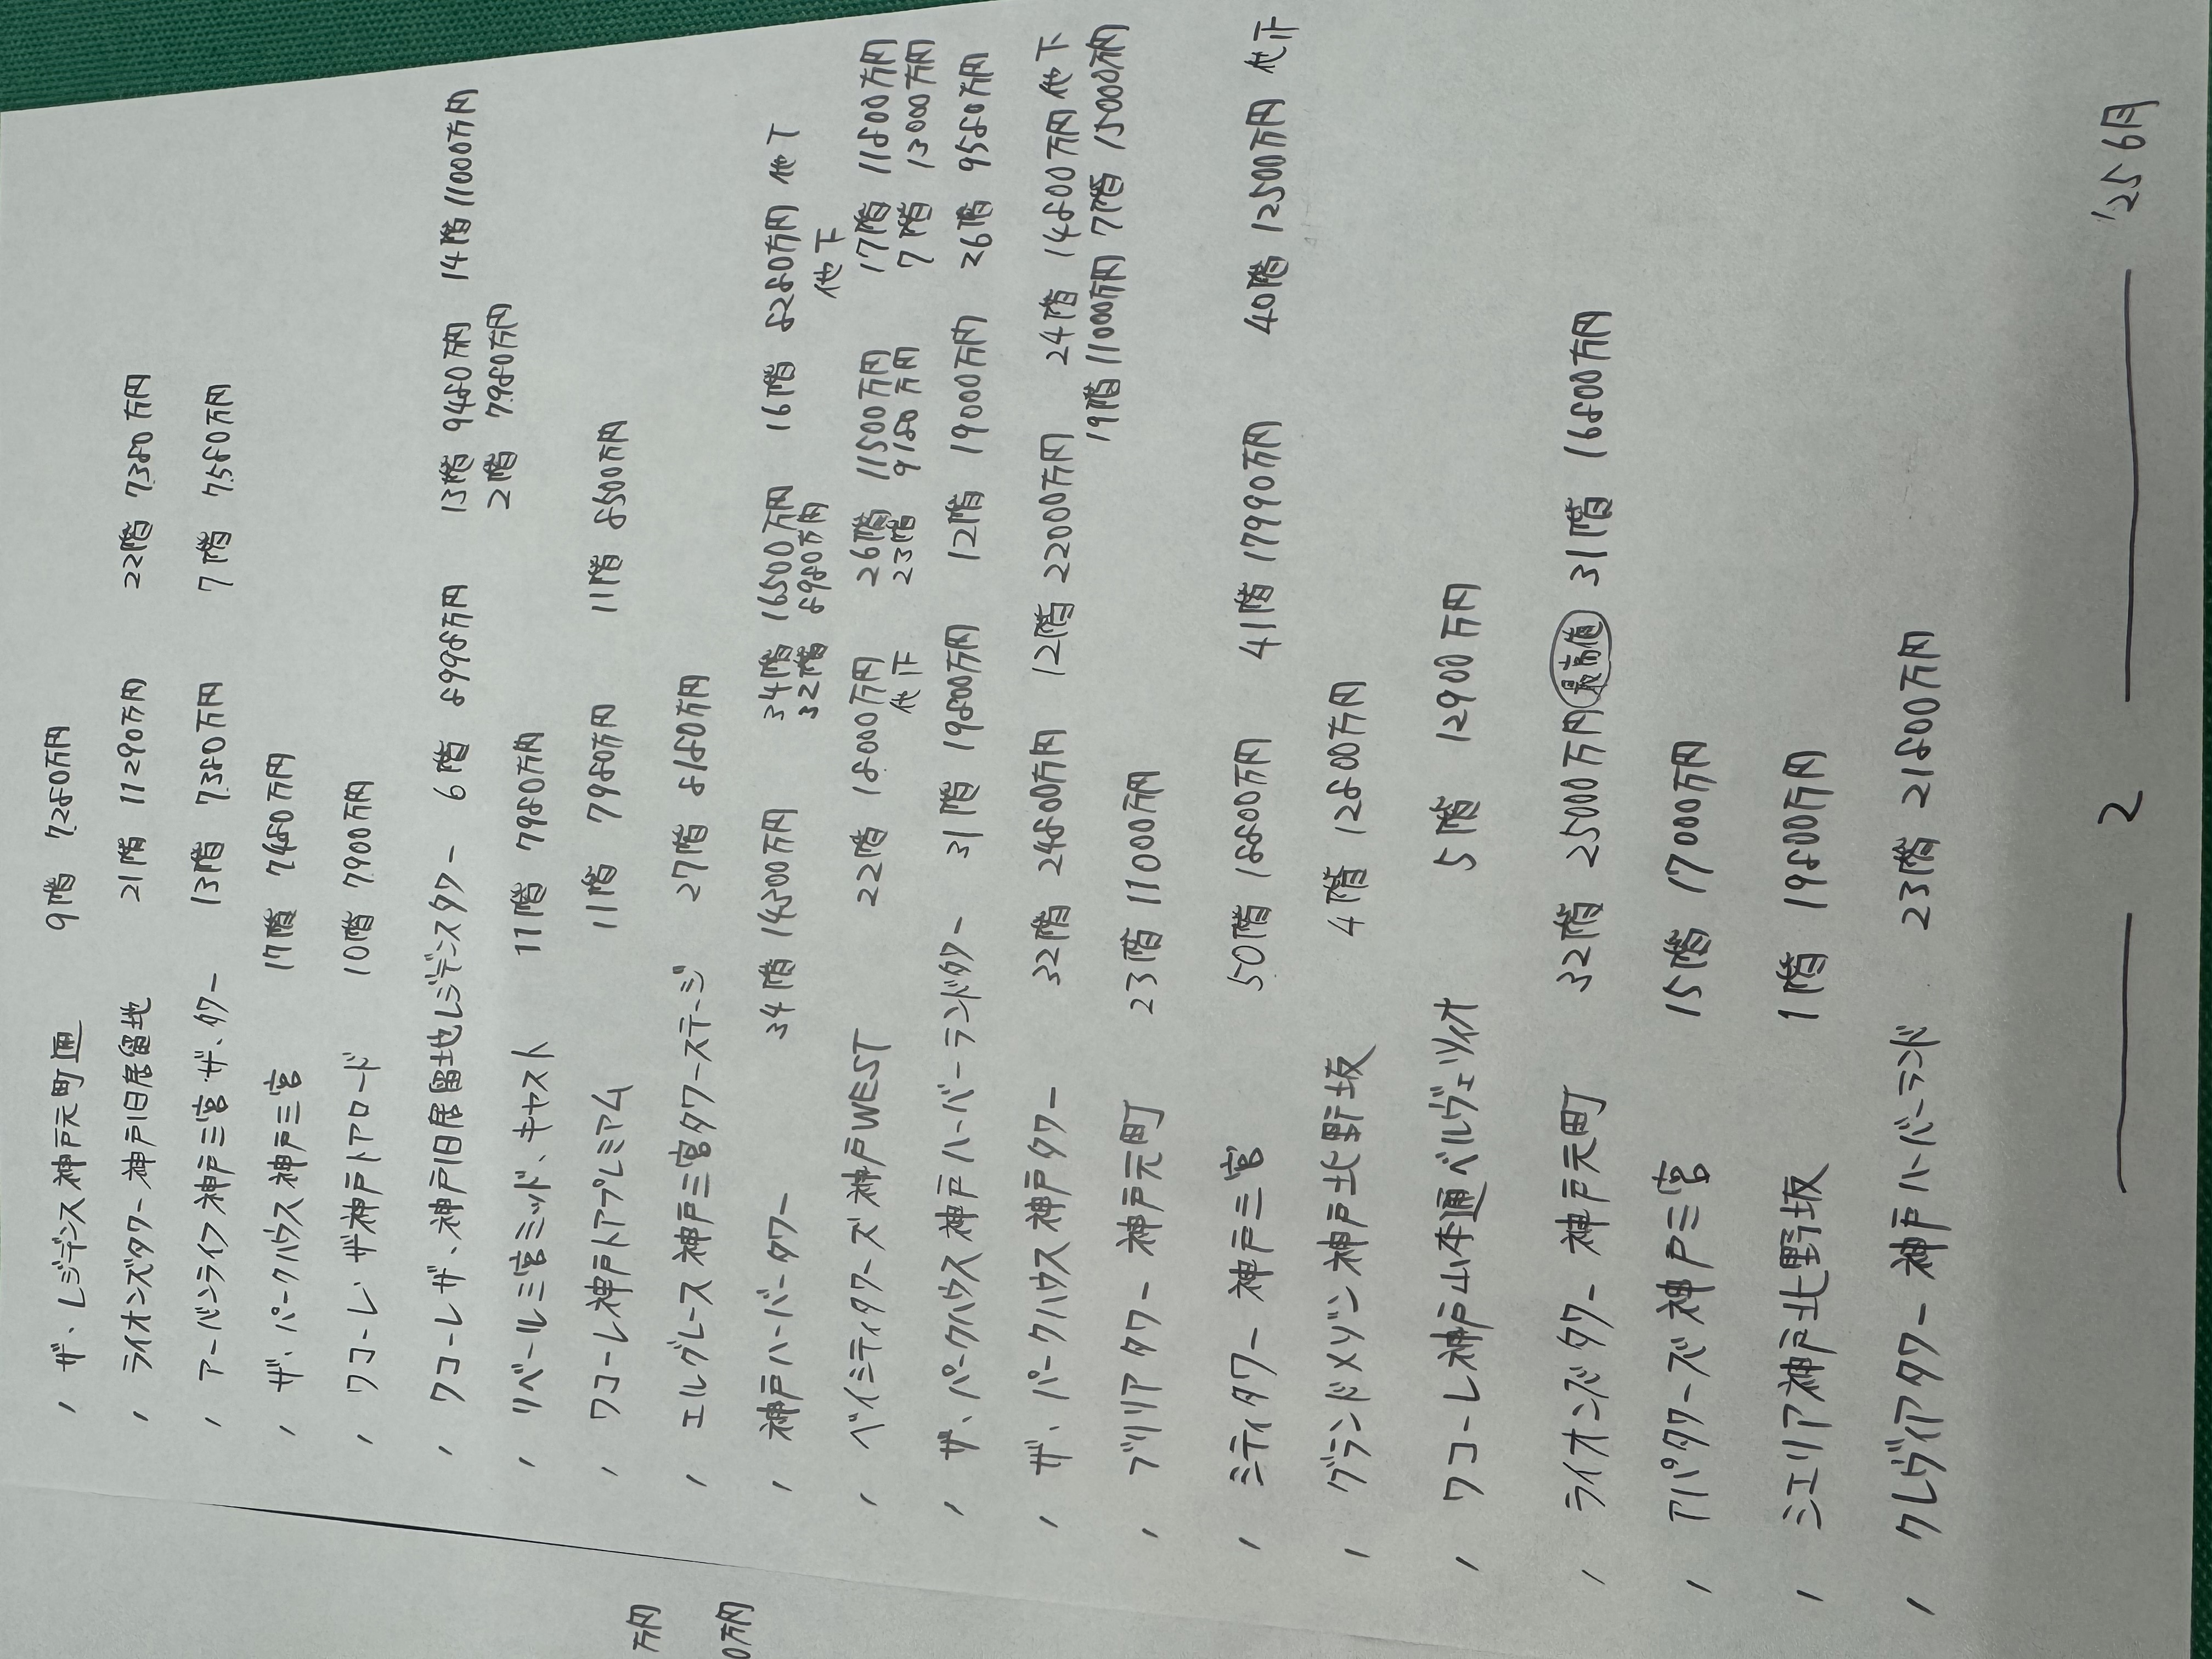 、ザ、レジデンス神戸元町通 9階 7280万円
、ライオンズタワー神戸旧居留地 21階 11290万円 22階 7380万円
、アーバンライフ神戸三宮ザ、タワー 13階 7380万円 7階 7580万円
、ザ、パークハウス神戸三宮 17階 7480万円
、ワコーレ ザ神戸トアロード 10階 7900万円
、ワコーレザ、神戸旧居留地レジデンスタワー 6階 8998万円 13階 9480万円 14階 11000万円
2階 7980万円
、リベール三宮ミッド、キャスト 11階 7980万円
、ワコーレ神戸トアプレミアム 11階 7980万円 11階 8500万円
、エルグレース神戸三宮タワーステージ 27階 8180万円
、神戸ハーバータワー 34階 14300万円 34階 16500万円 16階 8280万円 他下
32階 8980万円 他下
、ベイシティタワーズ神戸WEST 22階 18000万円 26階 11500万円 17階 11800万円
他下 23階 9180万円 7階 13000万円
、ザ、パークハウス神戸ハーバーランドタワー 31階 19800万円 12階 19000万円 26階 9580万円
、ザ、パークハウス神戸タワー 32階 24800万円 12階 22000万円 24階 14800万円 他下
19階 11000万円 7階 15000万円
、ブリリアタワー神戸元町 23階 11000万円
、シティタワー神戸三宮 50階 18800万円 41階 17990万円 40階 12500万円 他下
、グランドメゾン神戸北野坂 4階 12800万円
、ワコーレ神戸山本通ベルヴェツィオ 5階 12900万円
、ライオンズタワー神戸元町 32階 25000万円 最高値 31階 16800万円
、アパタワーズ神戸三宮 15階 17000万円
、ジエリア神戸北野坂 1階 19800万円
、クレヴィアタワー神戸ハーバーランド 23階 21800万円
2 '25 6月
万円
0万円